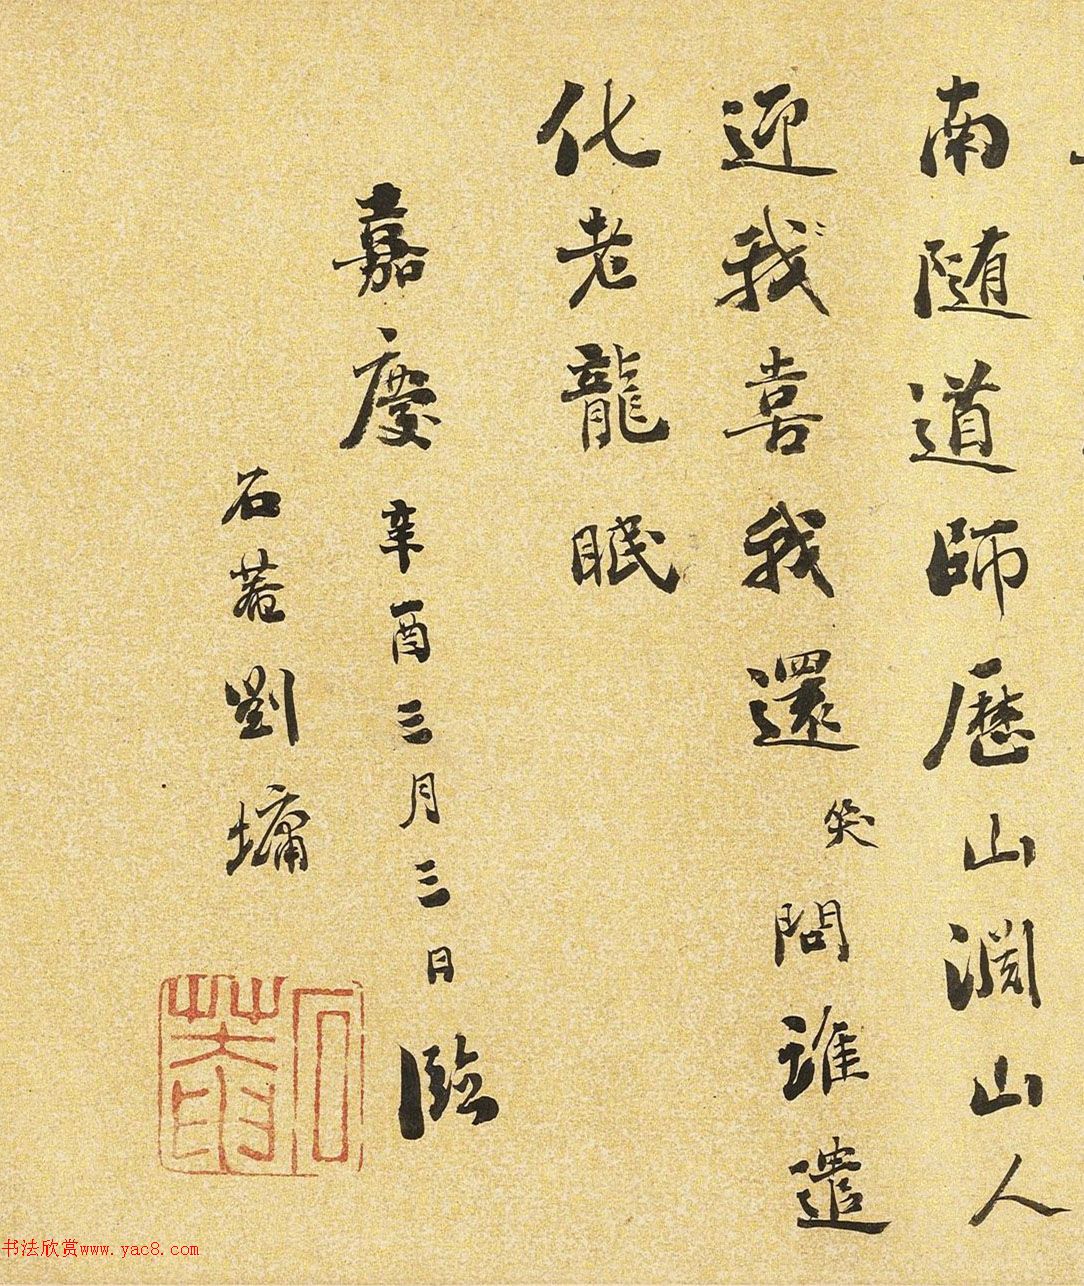 南随道師歷山淵山人
迎我喜我還笑問誰遣
化老龍眠
嘉慶辛酉三月三日臨
石菴劉墉
石菴
书法欣赏www.yac8.com